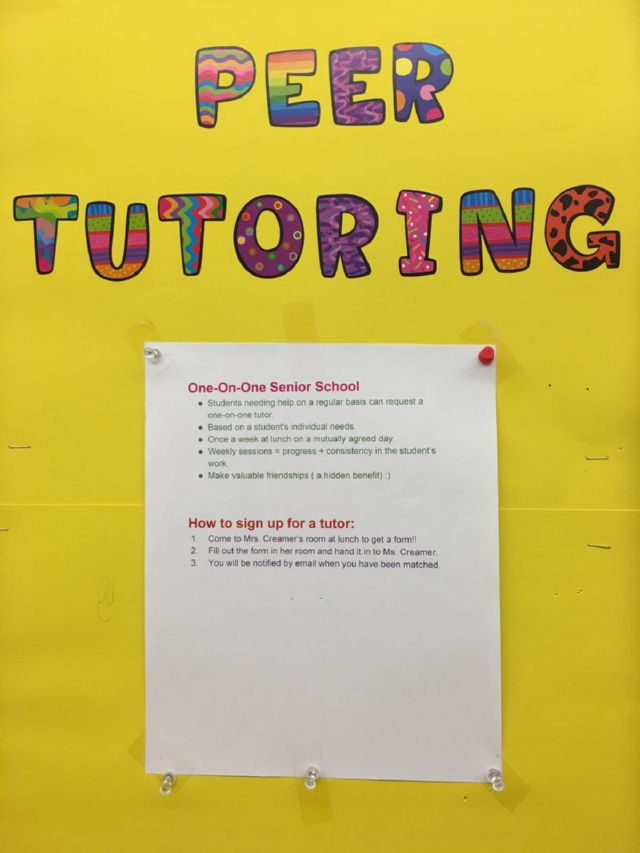 PEER
TUTORING
One-On-One Senior School
● Students needing help on a regular basis can request a
one-on-one tutor.
● Based on a student's individual needs.
● Once a week at lunch on a mutually agreed day.
● Weekly sessions = progress + consistency in the student's
work.
● Make valuable friendships ( a hidden benefit) :)
How to sign up for a tutor:
1. Come to Mrs. Creamer's room at lunch to get a form!!
2. Fill out the form in her room and hand it in to Ms. Creamer.
3. You will be notified by email when you have been matched.